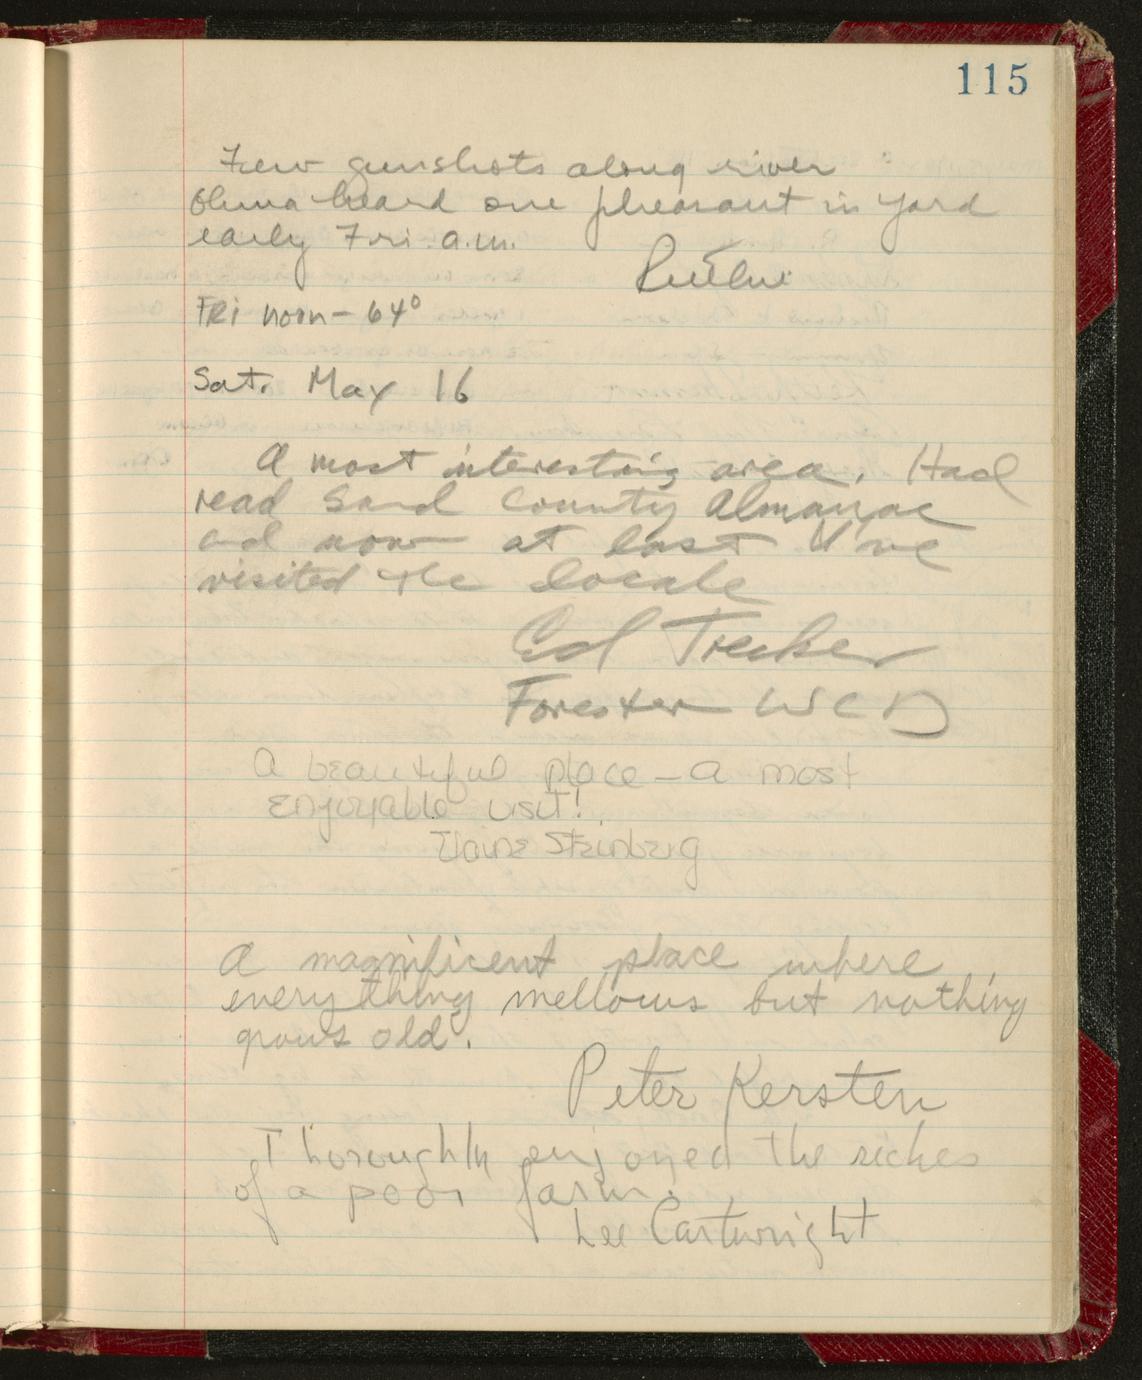 115
Few gunshots along river
heard one pheasant in yard
early Fri. a.m.
FRI noon - 64°
Sat. May 16
A most interesting area. Had
read Sand County Almanac
and now at last I've
visited the locale
Ed Trecker
Forester WCD
A beautiful place - a most
enjoyable visit!
Elaine Steinberg
A magnificent place where
everything mellows but nothing
grows old.
Peter Kersten
Thoroughly enjoyed the riches
of a poor farm.
Lee Cartwright